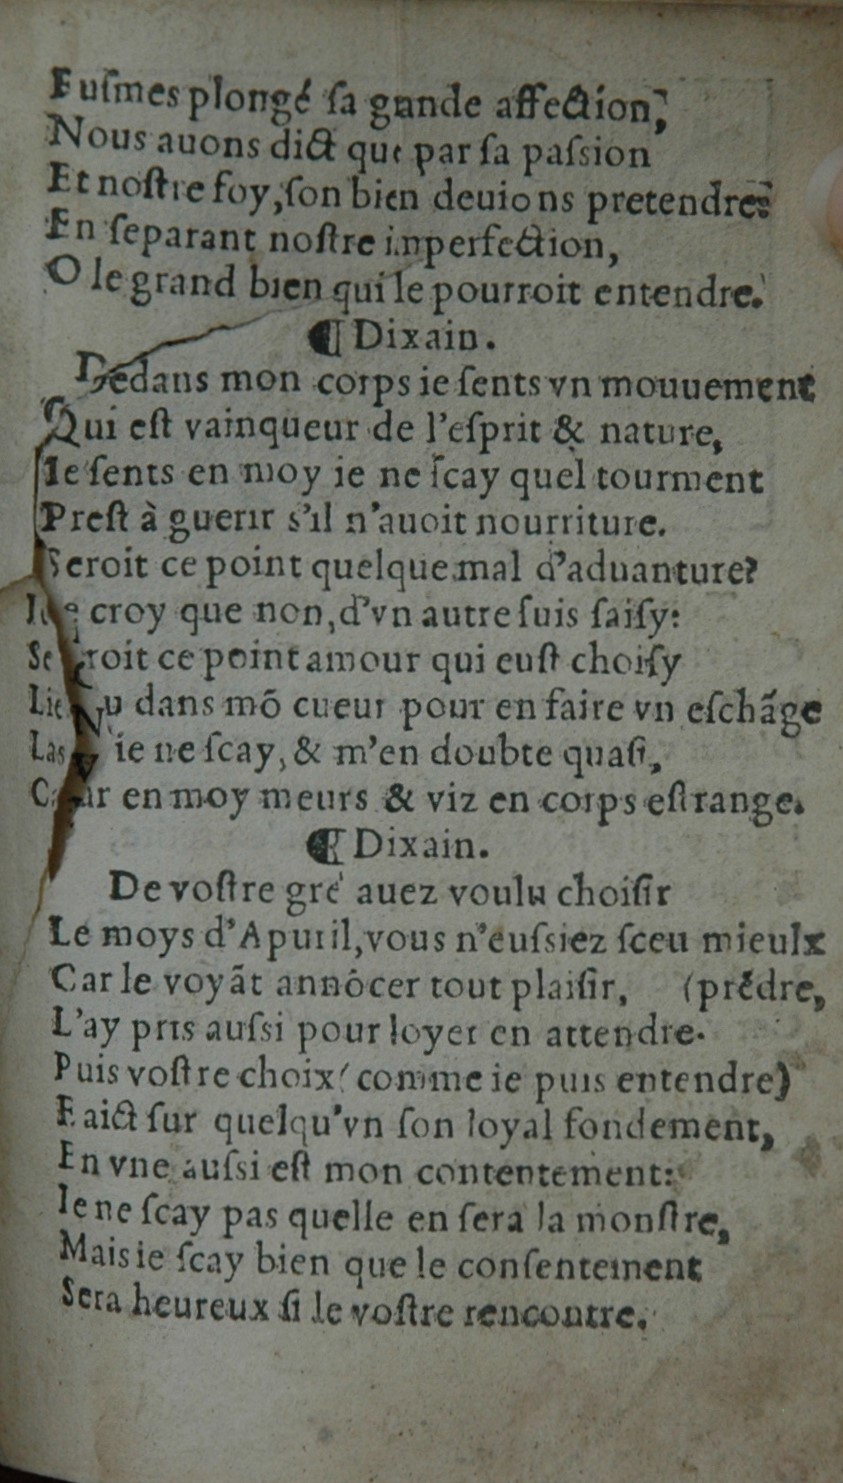 Fuſmes plongé ſa gande affection,
Nous auons dict que par ſa paſsion
Et noſtre foy, ſon bien deuions pretendre?
En ſeparant noſtre inperfection,
O le grand bien qui le pourroit entendre.
¶ Dixain.
Dedans mon corps ie ſents vn mouuement
Qui eſt vainqueur de l'eſprit & nature,
Ie ſents en moy ie ne ſcay quel tourment
Preſt à guerir s'il n'auoit nourriture.
Seroit ce point quelque mal d'aduanture?
croy que non, d'vn autre ſuis ſaiſy:
Seroit ce point amour qui euſt choiſy
Lieu dans mō cueur pour en faire vn eſchāge
Las ie ne ſcay, & m'en doubte quaſi,
Car en moy meurs & viz en corps eſtrange.
¶ Dixain.
De voſtre gré auez voulu choiſir
Le moys d'Apuril, vous n'euſsiez ſceu mieulx
Car le voyāt annōcer tout plaiſir, (prēdre,
L'ay pris auſsi pour loyer en attendre.
Puis voſtre choix (comme ie puis entendre)
Faict ſur quelqu'vn ſon loyal fondement,
En vne auſsi eſt mon contentement:
Ie ne ſcay pas quelle en ſera la monſtre,
Mais ie ſcay bien que le conſentement
Sera heureux ſi le voſtre rencontre.